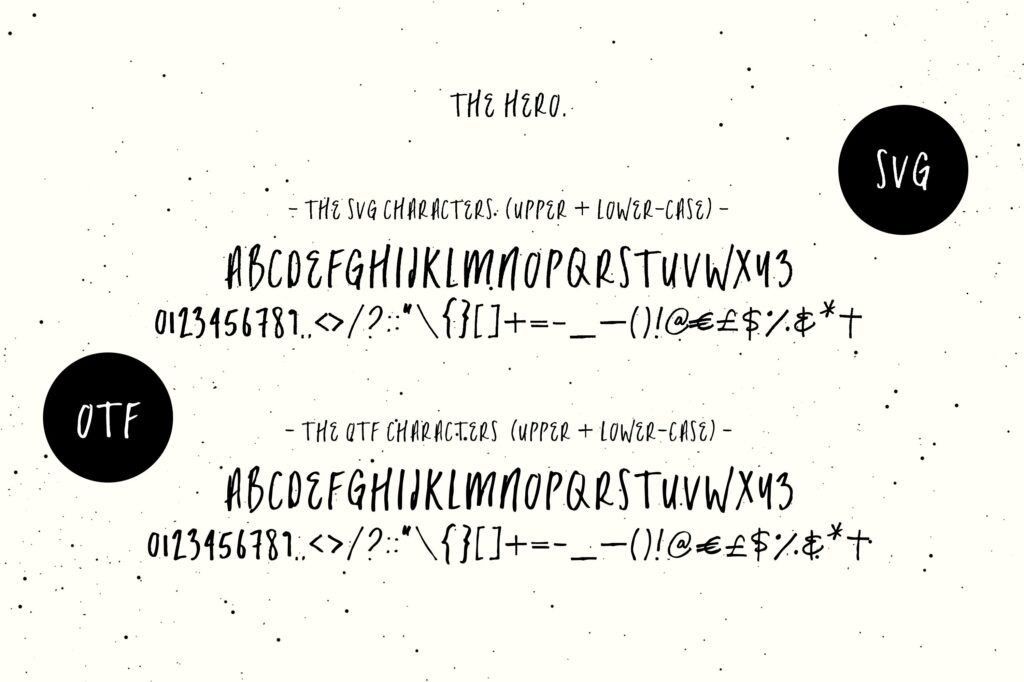 THE HERO.
SVG
- THE SVG CHARACTERS. (UPPER + LOWER-CASE) -
ABCDEFGHIJKLMNOPQRSTUVWXYZ
0123456789.,<>/?:;"\{}[]+=-_—()!@€£$%&*†
OTF
- THE OTF CHARACTERS (UPPER + LOWER-CASE) -
ABCDEFGHIJKLMNOPQRSTUVWXYZ
0123456789.,<>/?:;"\{}[]+=-_—()!@€£$%&*†